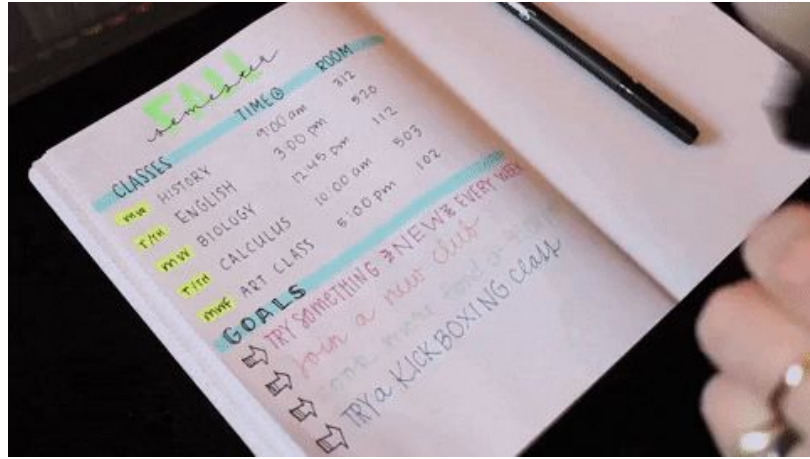 FALL
semester
CLASSES TIME ROOM
MW HISTORY 9:00 am 312
T/TH ENGLISH 3:00 pm 520
MW BIOLOGY 12:45 pm 112
T/TH CALCULUS 10:00 am 503
MWF ART CLASS 5:00 pm 102
GOALS
TRY SOMETHING NEW EVERY WEEK
Join a new club
cook more food at
TRY a KICKBOXING class